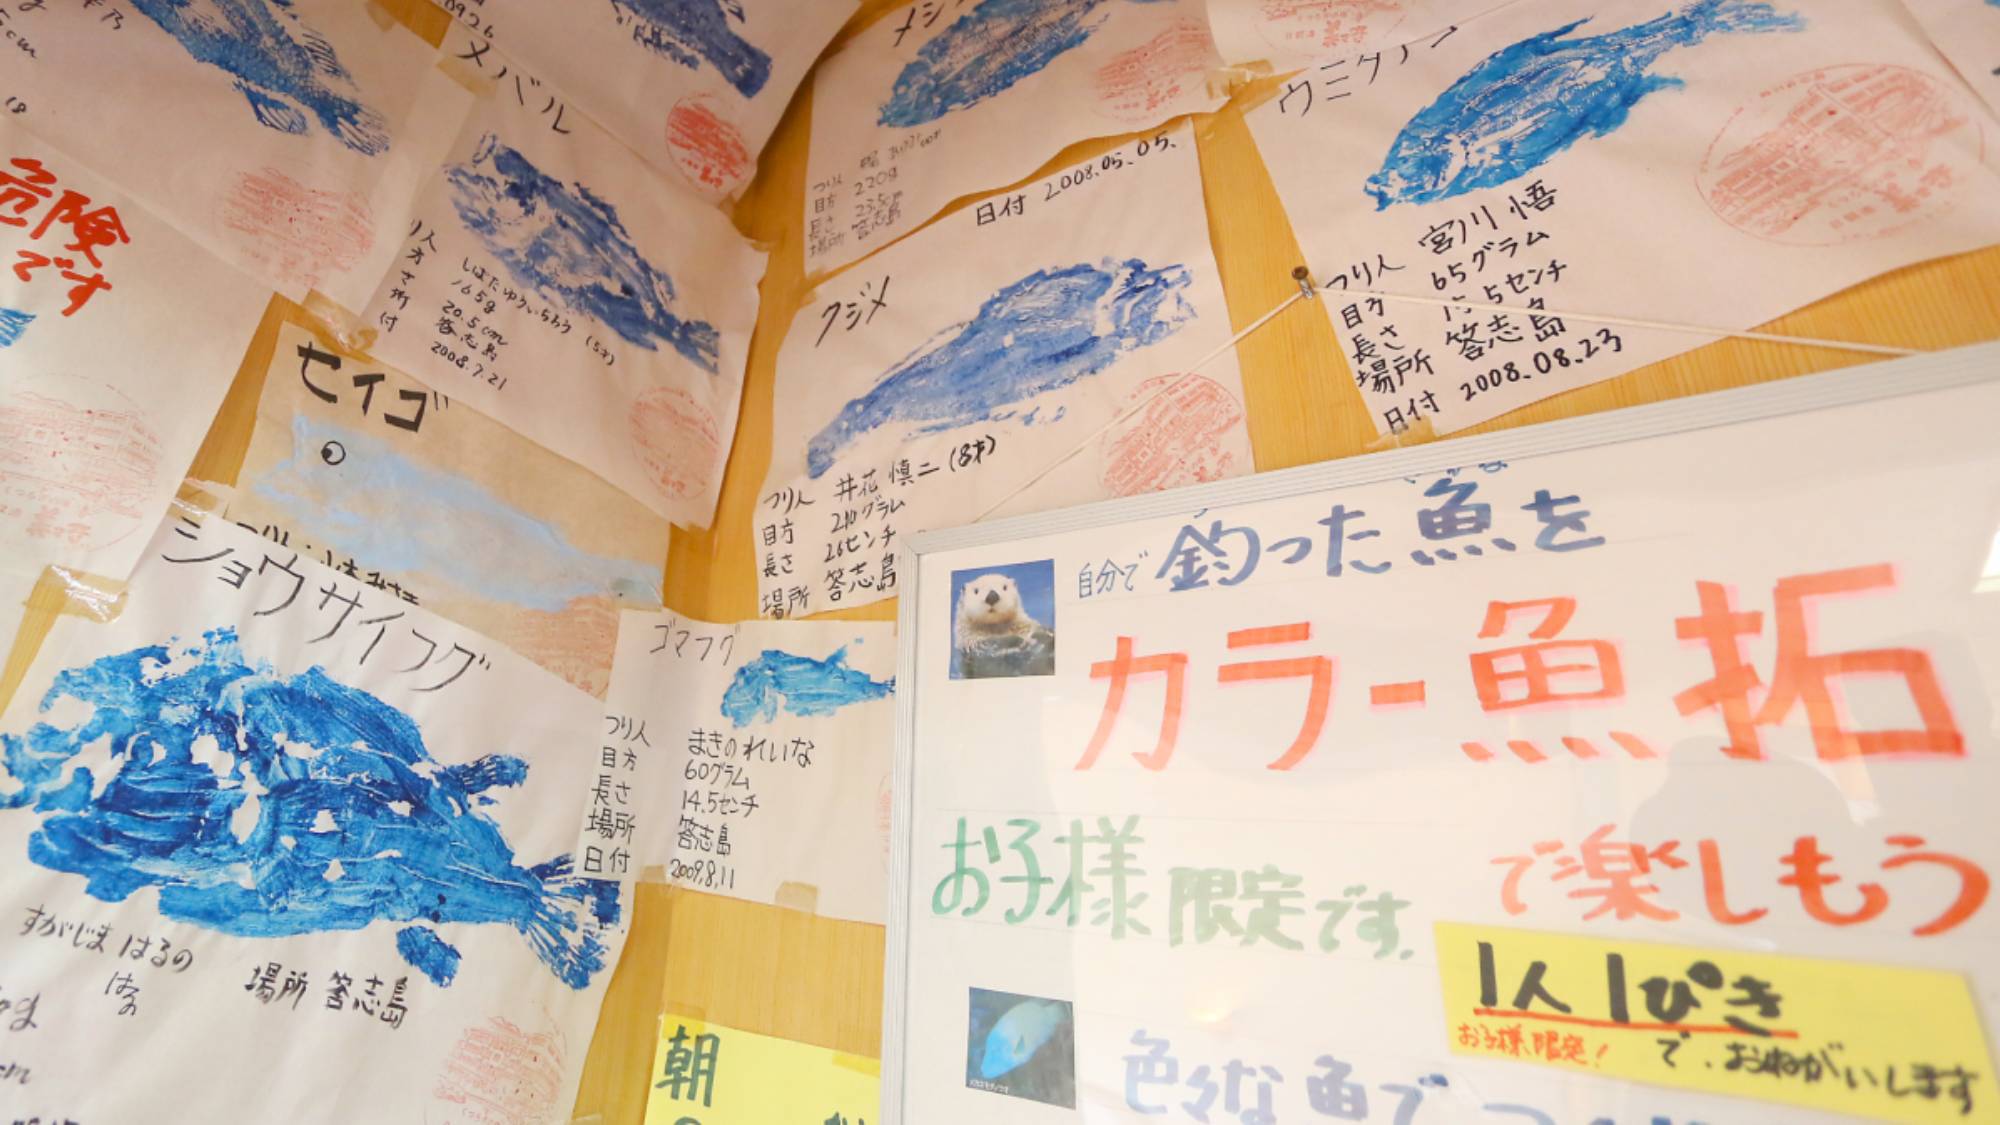 メバル
しばたゆういちろう (5才)
165g
20.5cm
答志島
2008.7.21
危険
です
セイゴ
ショウサイフグ
すがじま はるの
場所 答志島
つり人
目方 220g
長さ 23.5cm
場所 答志島
日付 2008.05.05.
クジメ
つり人 井花 慎二 (8才)
目方 210グラム
長さ 26センチ
場所 答志島
ゴマフグ
つり人 まきの れいな
目方 60グラム
長さ 14.5センチ
場所 答志島
日付 2009.8.11
ウミタナゴ
つり人 宮川 悟
目方 65グラム
長さ 15.5センチ
場所 答志島
日付 2008.08.23
自分で釣った魚を
カラー魚拓
で楽しもう
お子様限定です.
1人1ぴき
お子様限定! で.おねがいします
色々な魚で
朝